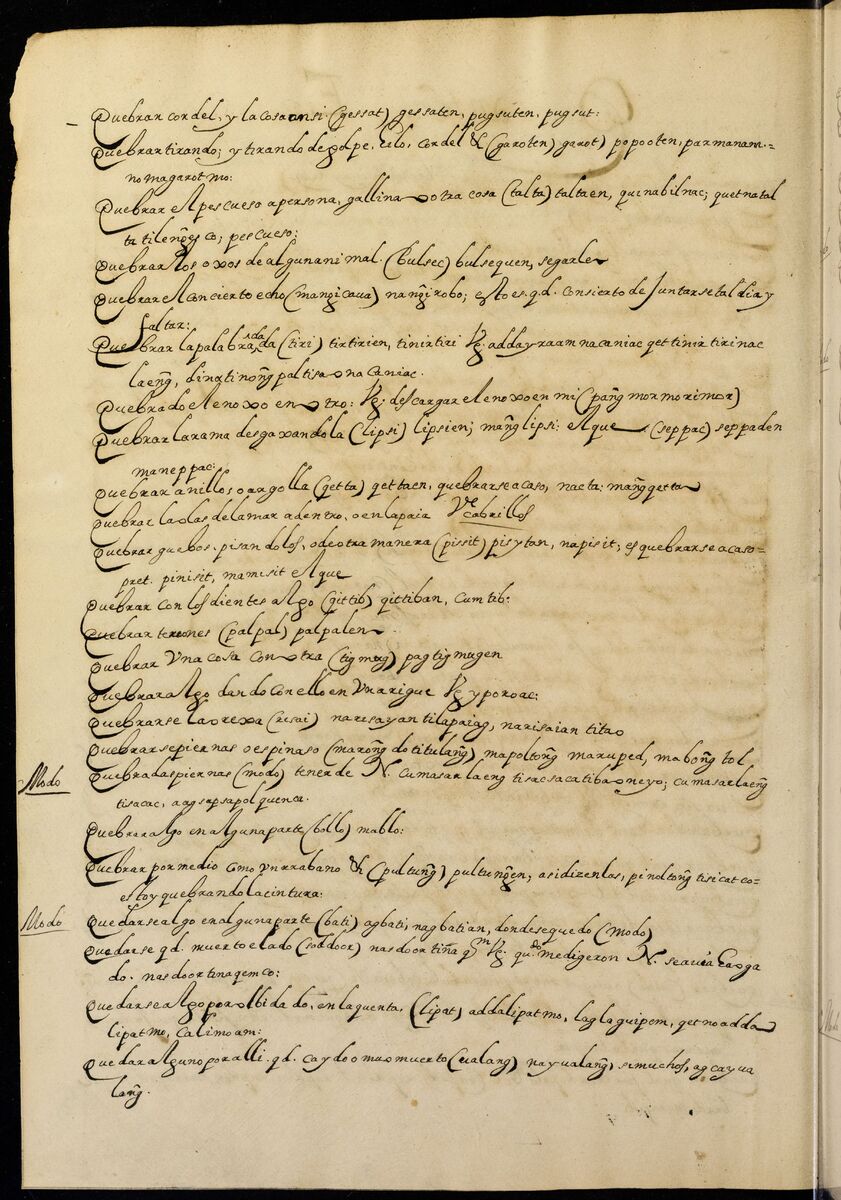 Quebrar cordel, y la cosa ansi (gessat) gessaten, pugsuten, pugsut:
Quebrar tirando; y tirando de golpe, hilo, cordel & (garoten) garot) popooten, parmanam.=
no magarot mo:
Quebrar el pescueso a persona, gallina o otra cosa (talta) taltaen, quinabilnac; quetnatal
ta tilengês co; pescueso:
Quebrar los oxos de algun animal. (bulsec) bulsequen, segarle
Quebrar el concierto echo (mangicaua) nangirobo; esto es. q.d. consierto de Juntarse tal dia y
faltar:
Quebrar la palabra dada (tiri) tirtirien, tinirtiri Vg. adda y raam nacaniac qet tinir tirinac
laeñg, dinatinoñg paltisa o na caniac.
Quebrado el enoxo en otro: Vg: descargar el enoxo en mi (pañg mormorimor)
Quebrar la rama desgaxandola (lipsi) lipsien; mañg lipsi: el que (seppac) seppaden
maneppac:
Quebrar anillos o argolla (qetta) qettaen, quebrarse acaso, nacta: mañg qetta
Quebrar las olas de la mar adentro, o en la paia Ve cabrillos
Quebrar guebos. pisandolos, o de otra manera (pissit) pisytan, napisit; es quebrarse acaso=
pret. pinisit, mamisit el que
Quebrar con los dientes algo (gittib) qittiban, cumtib:
Quebrar terrones (palpal) palpalen.
Quebrar vna cosa con otra (tigmug) pagtigmugen
Quebrar algo dando con ello en vn arigue Vg y poroac:
Quebrarse la orexa (resai) naresayan tilapaiag, narisaian titao
Quebrarse piernas o espinaso (maroñg do titulañg) mapoltoñg maruped, maboñg tol
Modo Quebradas piernas (modo) tener de N. cumasar laeng tisacsacatibaoneyo; cumasar laeñg
tisacac, aagsapsapol quenca.
Quebrar algo en alguna parte (bollo) mablo:
Quebrar por medio como vn rrabano & (pultuñg) pultungen; asi dizen los, pinoltoñg tisicat co=
estoy quebrando la cintura:
Modo Quedarse algo en alguna parte (bati) agbati, nagbatian, donde se quedo (Modo)
Quedarse q.d. muerto elado (soddoor) nasdoor tiña qm Vg. qudo me digeron N. se auia Eaoga
do. nasdoor tinaqemco:
Quedarse algo por olbidado, en la quenta, (lipat) addalipatmo, laglaguipem, qet no adda
lipatmo, calimoam:
Quedar alguno por alli. q.d. caydo o muo muerto (ualang) nayualañg, si muchos, agcayua
lañg.